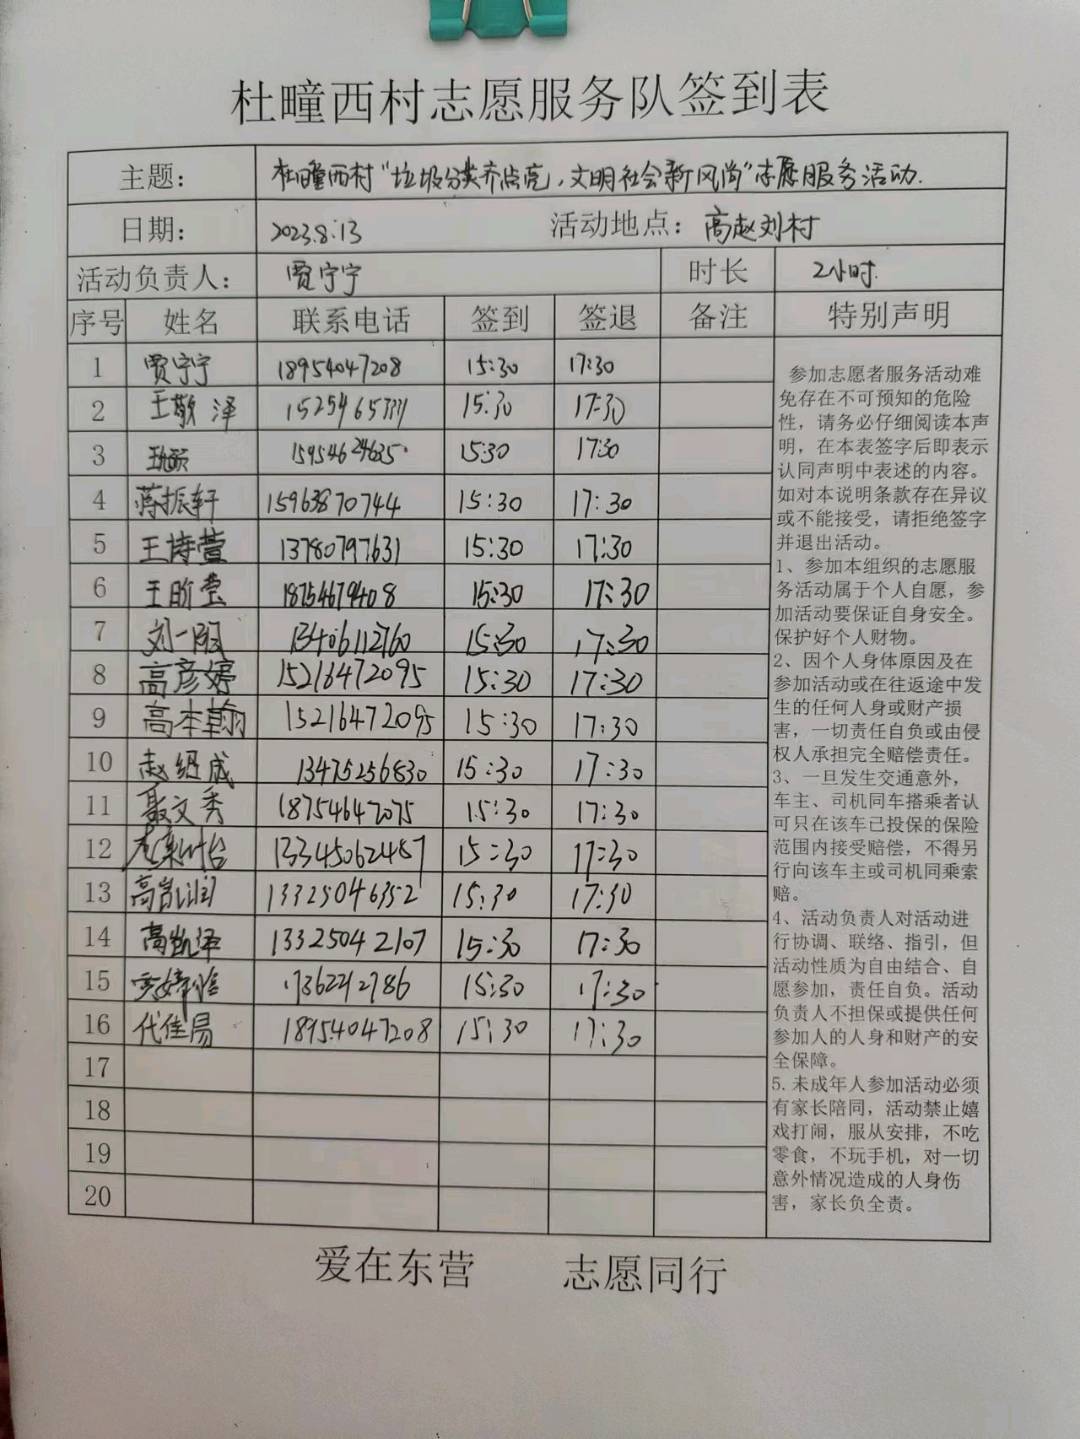 杜疃西村志愿服务队签到表
主题： 杜疃西村“垃圾分类齐点亮，文明社会新风尚”志愿服务活动.
日期： 2023.8.13 活动地点：高赵刘村
活动负责人： 贾宁宁 时长 2小时.
序号 姓名 联系电话 签到 签退 备注 特别声明
1 贾宁宁 18954047208 15:30 17:30
2 王敬泽 15:30 17:30
3 15954624635 15:30 17:30
4 蒋振轩 15963870744 15:30 17:30
5 王诗萱 13780797631 15:30 17:30
6 王昕莹 18754679408 15:30 17:30
7 刘一阳 13406112760 15:30 17:30
8 高彦婷 15216472095 15:30 17:30
9 高本翰 15216472095 15:30 17:30
10 赵绍成 13475256830 15:30 17:30
11 聂文秀 18754647075 15:30 17:30
12 13345062457 15:30 17:30
13 高凯润 13325046352 15:30 17:30
14 高凯泽 13325042107 15:30 17:30
15 15:30 17:30
16 代佳易 18954047208 15:30 17:30
17
18
19
20
参加志愿者服务活动难
免存在不可预知的危险
性，请务必仔细阅读本声
明，在本表签字后即表示
认同声明中表述的内容。
如对本说明条款存在异议
或不能接受，请拒绝签字
并退出活动。
1、参加本组织的志愿服
务活动属于个人自愿，参
加活动要保证自身安全。
保护好个人财物。
2、因个人身体原因及在
参加活动或在往返途中发
生的任何人身或财产损
害，一切责任自负或由侵
权人承担完全赔偿责任。
3、一旦发生交通意外，
车主、司机同车搭乘者认
可只在该车已投保的保险
范围内接受赔偿，不得另
行向该车主或司机同乘索
赔。
4、活动负责人对活动进
行协调、联络、指引，但
活动性质为自由结合、自
愿参加，责任自负。活动
负责人不担保或提供任何
参加人的人身和财产的安
全保障。
5.未成年人参加活动必须
有家长陪同，活动禁止嬉
戏打闹，服从安排，不吃
零食，不玩手机，对一切
意外情况造成的人身伤
害，家长负全责。
爱在东营 志愿同行